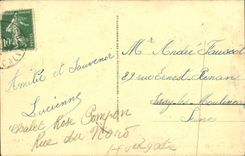 10
Mr André Faussot
83 rue Ernest Renan
Issy les Moulineaux
Seine
Amitié et Souvenir
Lucienne
Chalet Rose Pompon
Rue du Nord